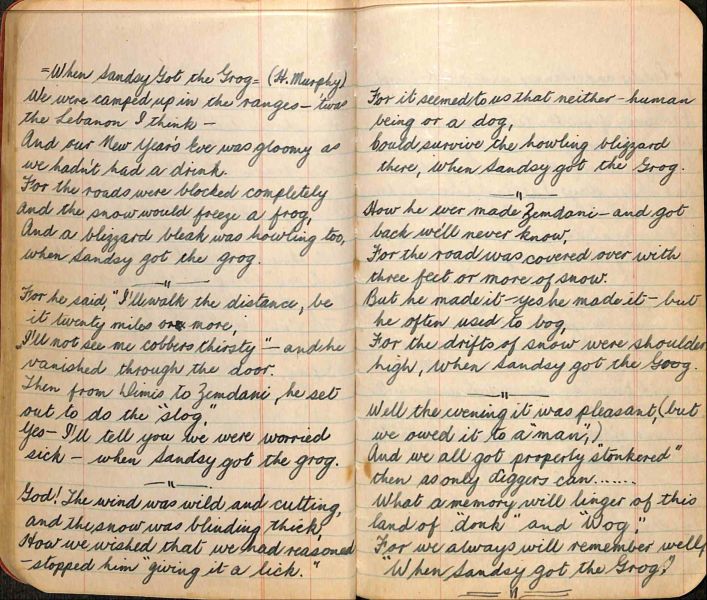 =When Sandsy Got the Grog= (H. Murphy)
We were camped up in the ranges - 'twas
the Lebanon I think -
And our New Year's Eve was gloomy as
we hadn't had a drink.
For the roads were blocked completely
And the snow would freeze a frog,
And a blizzard bleak was howling too,
when Sandsy got the grog.
For he said, "I'll walk the distance, be
it twenty miles or more,
"I'll not see me cobbers thirsty" - and he
vanished through the door.
Then from Dimis to Zemdani, he set
out to do the "slog,"
Yes - I'll tell you we were worried
sick - when Sandsy got the grog.
God! The wind was wild and cutting,
and the snow was blinding thick,
How we wished that we had reasoned
- stopped him "giving it a lick."
For it seemed to us that neither - human
being or a dog,
Could survive the howling blizzard
there, when Sandsy got the Grog.
How he ever made Zemdani - and got
back we'll never know,
For the road was covered over with
three feet or more of snow.
But he made it - yes he made it - but
he often used to bog,
For the drifts of snow were shoulder
high, when Sandsy got the Goog.
Well the evening it was pleasant, (but
we owed it to a "man",)
And we all got properly "stonkered"
then as only diggers can.......
What a memory will linger of this
land of "donk" and "Wog,"
For we always will remember well,
"When Sandsy got the Grog."